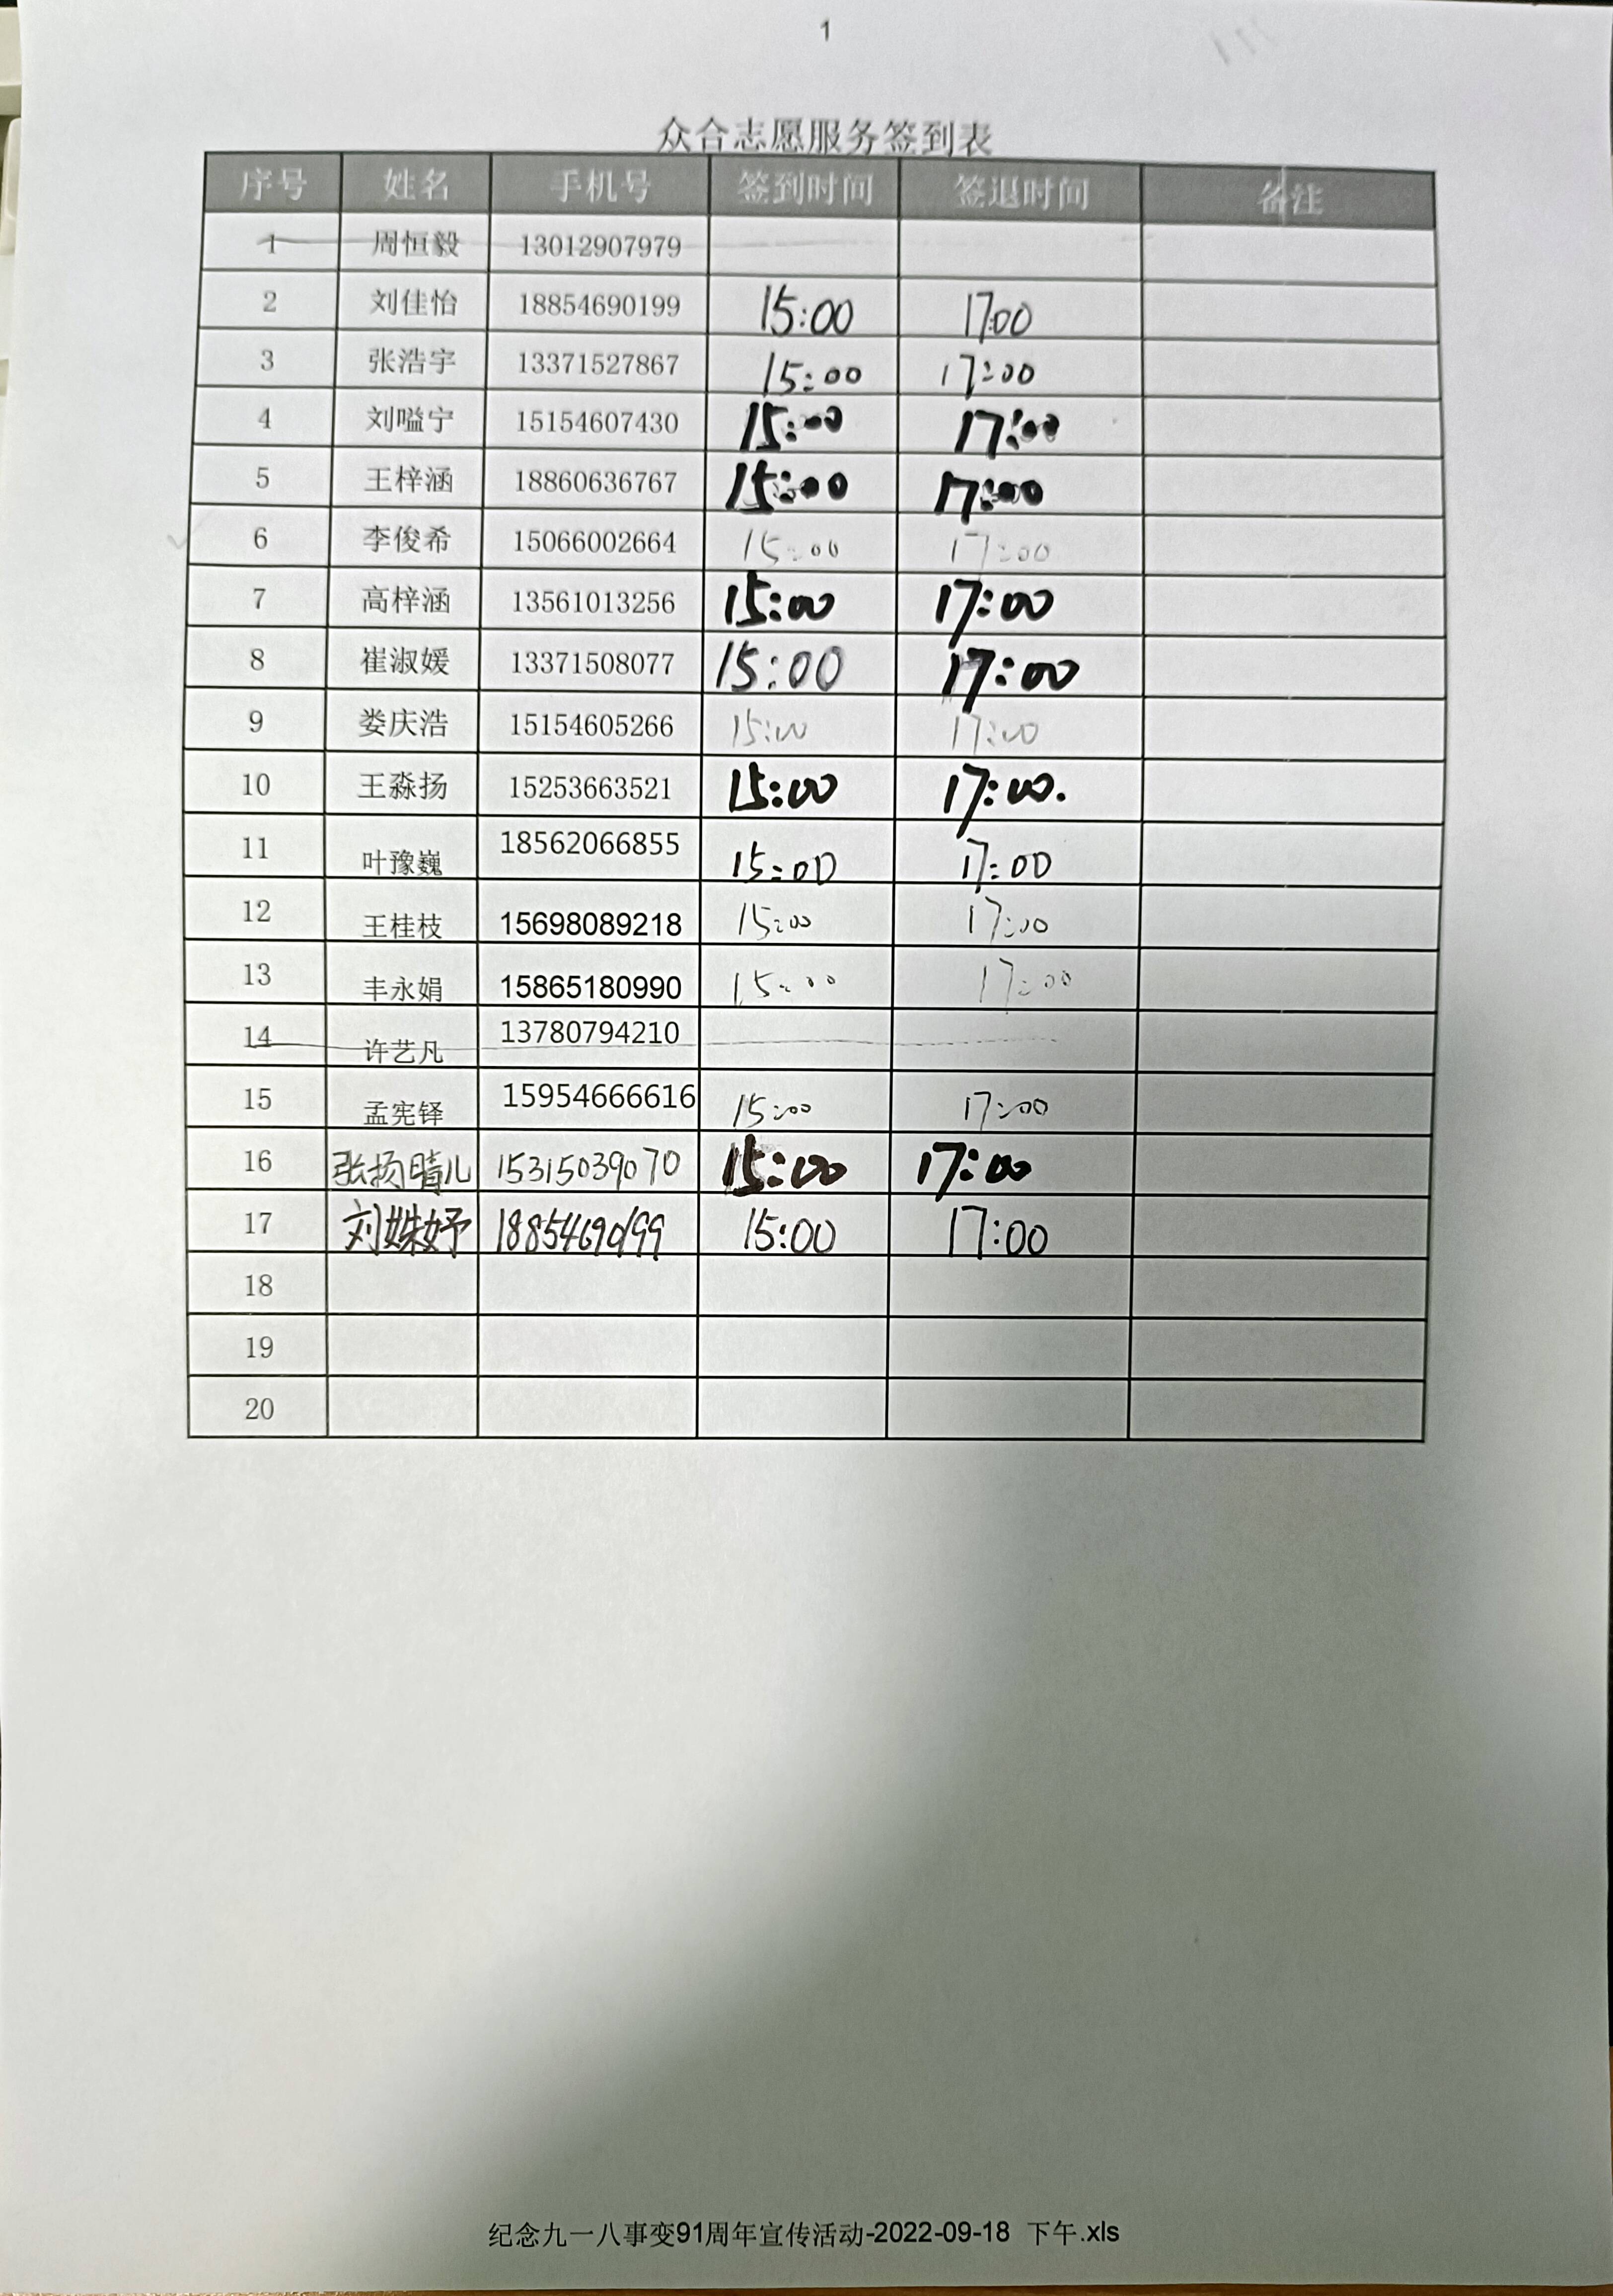 1
众合志愿服务签到表
序号 姓名 手机号 签到时间 签退时间 备注
1 周恒毅 13012907979
2 刘佳怡 18854690199 15:00 17:00
3 张浩宇 13371527867 15:00 17:00
4 刘嗌宁 15154607430 15:00 17:00
5 王梓涵 18860636767 15:00 17:00
6 李俊希 15066002664 15:00 17:00
7 高梓涵 13561013256 15:00 17:00
8 崔淑媛 13371508077 15:00 17:00
9 娄庆浩 15154605266 15:00 17:00
10 王淼扬 15253663521 15:00 17:00.
11 叶豫巍 18562066855 15:00 17:00
12 王桂枝 15698089218 15:00 17:00
13 丰永娟 15865180990 15:00 17:00
14 许艺凡 13780794210
15 孟宪铎 15954666616 15:00 17:00
16 张扬晴儿 15315039070 15:00 17:00
17 刘姝妤 18854690199 15:00 17:00
18
19
20
纪念九一八事变91周年宣传活动-2022-09-18 下午.xls